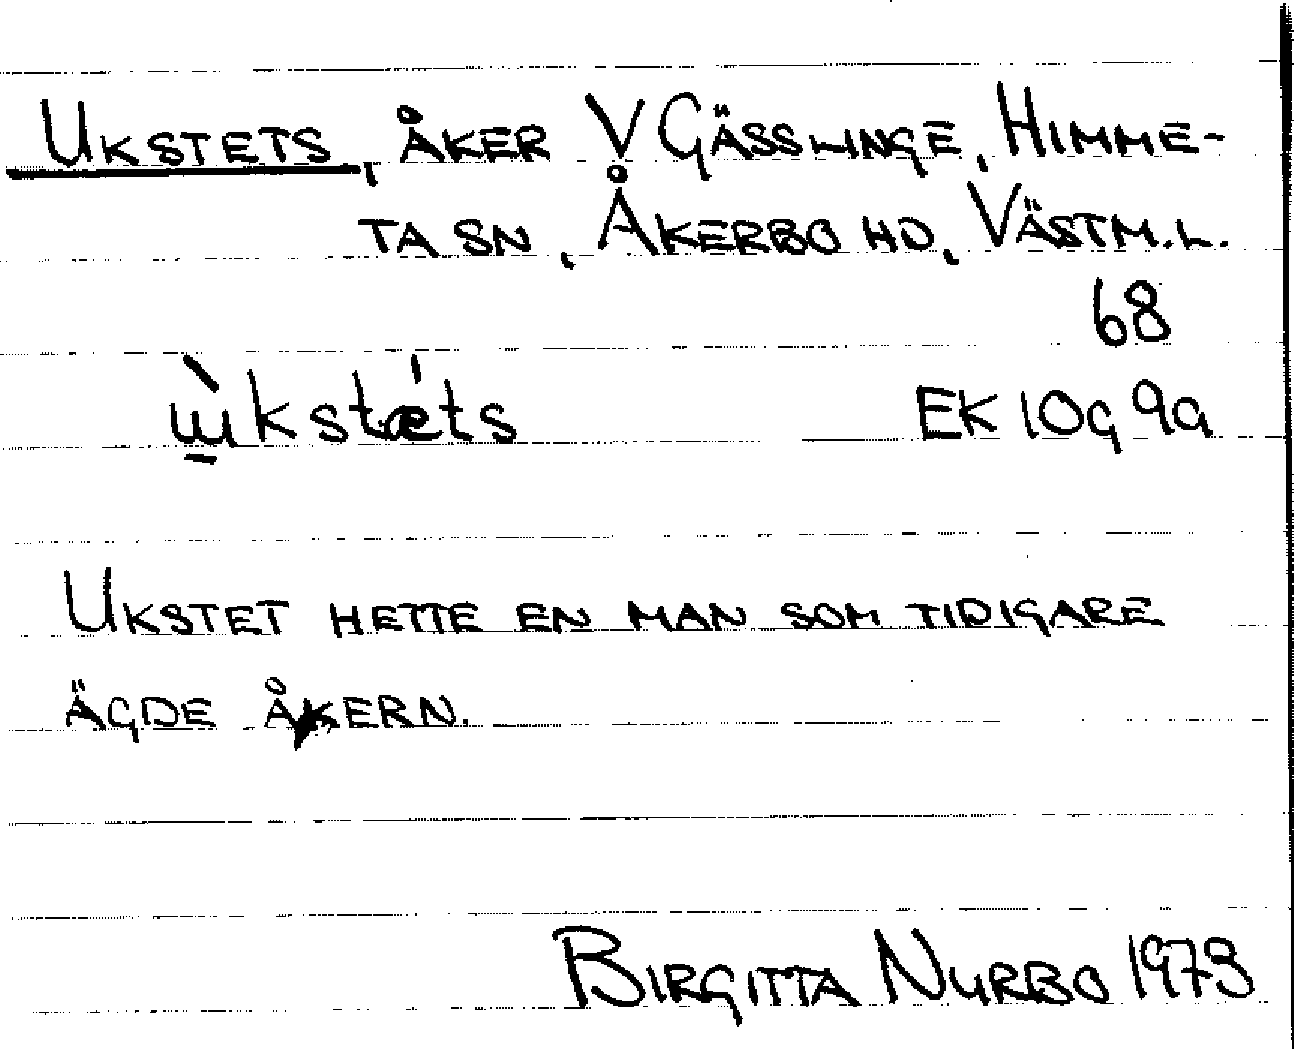 UKSTETS, ÅKER V GÄSSLINGE, HIMME-
TA SN, ÅKERBO HD, VÄSTM.L.
68
ɯ̠̀kstǽts EK 10g 9a
UKSTET HETTE EN MAN SOM TIDIGARE
ÄGDE ÅKERN.
BIRGITTA NURBO 1973